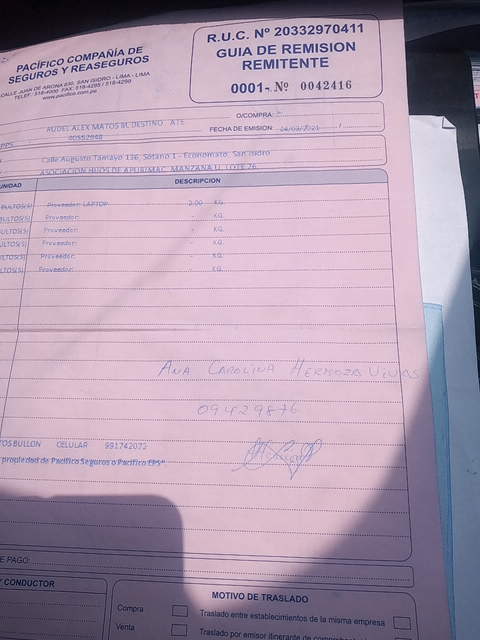 PACÍFICO COMPAÑÍA DE
SEGUROS Y REASEGUROS
CALLE JUAN DE ARONA 830, SAN ISIDRO - LIMA - LIMA
TELEF: 518-4000 FAX: 518-4295 / 518-4299
www.pacifico.com.pe
R.U.C. Nº 20332970411
GUIA DE REMISION
REMITENTE
0001- Nº 0042416
O/COMPRA:
AUDEL ALEX MATOS M. DESTINO . ATE
FECHA DE EMISION 24/03/2021
EPS
Calle Augusto Tamayo 136, Sotano 1 - Economato, San Isidro
ASOCIACION HIJOS DE APURIMAC MANZANA U, LOTE 26
UNIDAD DESCRIPCION
BULTOS(S) Proveedor: LAPTOP 2.00 KG.
BULTOS(S) Proveedor: - KG.
ULTOS(S) Proveedor: - KG.
ULTOS(S) Proveedor: - KG.
LTOS(S) Proveedor: - KG.
LTOS(S) Proveedor: - KG.
ANA CAROLINA HERMOZA VIVAS
09429876
TOS BULLON CELULAR 991742073
propiedad de Pacífico Seguros o Pacífico EPS"
E PAGO:
Y CONDUCTOR
MOTIVO DE TRASLADO
Compra
Traslado entre establecimientos de la misma empresa
Venta
Traslado por emisor itinerante de